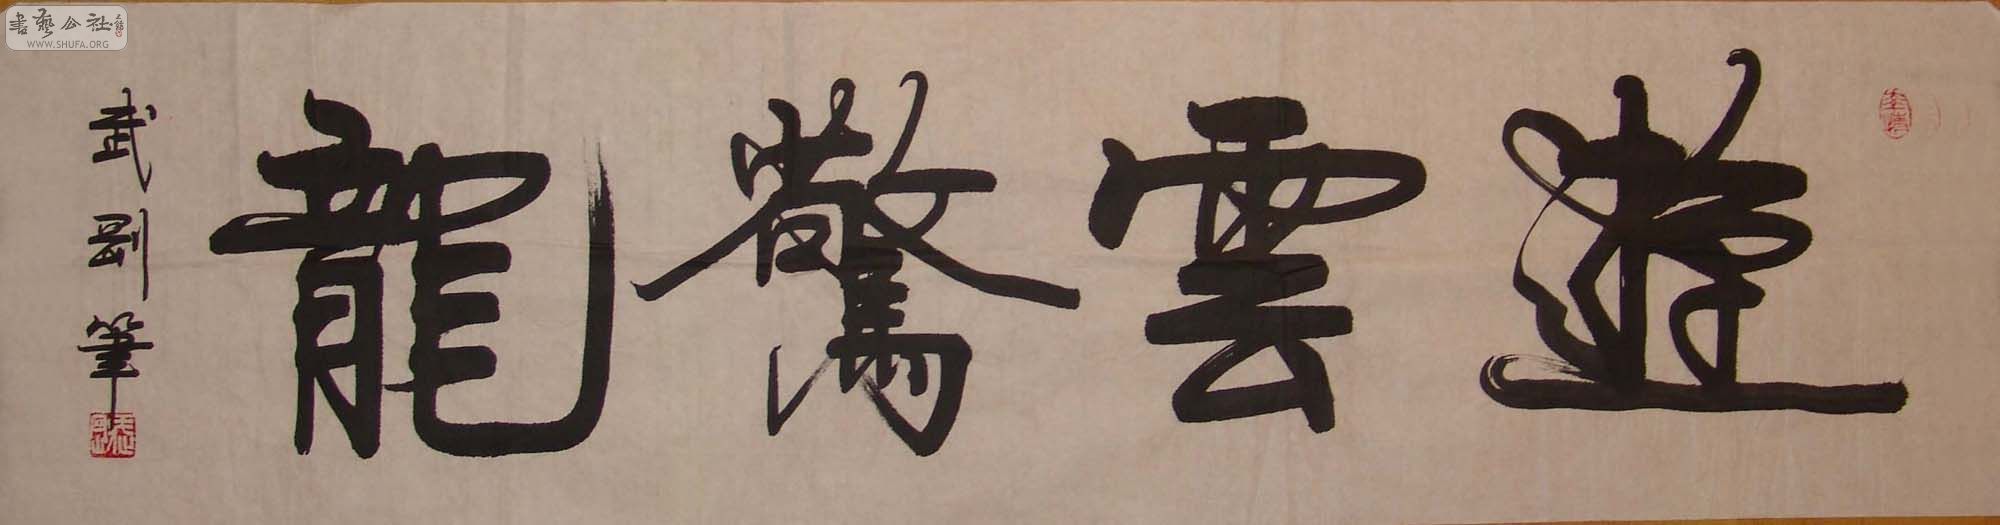 遊雲驚龍
武剛筆
書藝公社
WWW.SHUFA.ORG